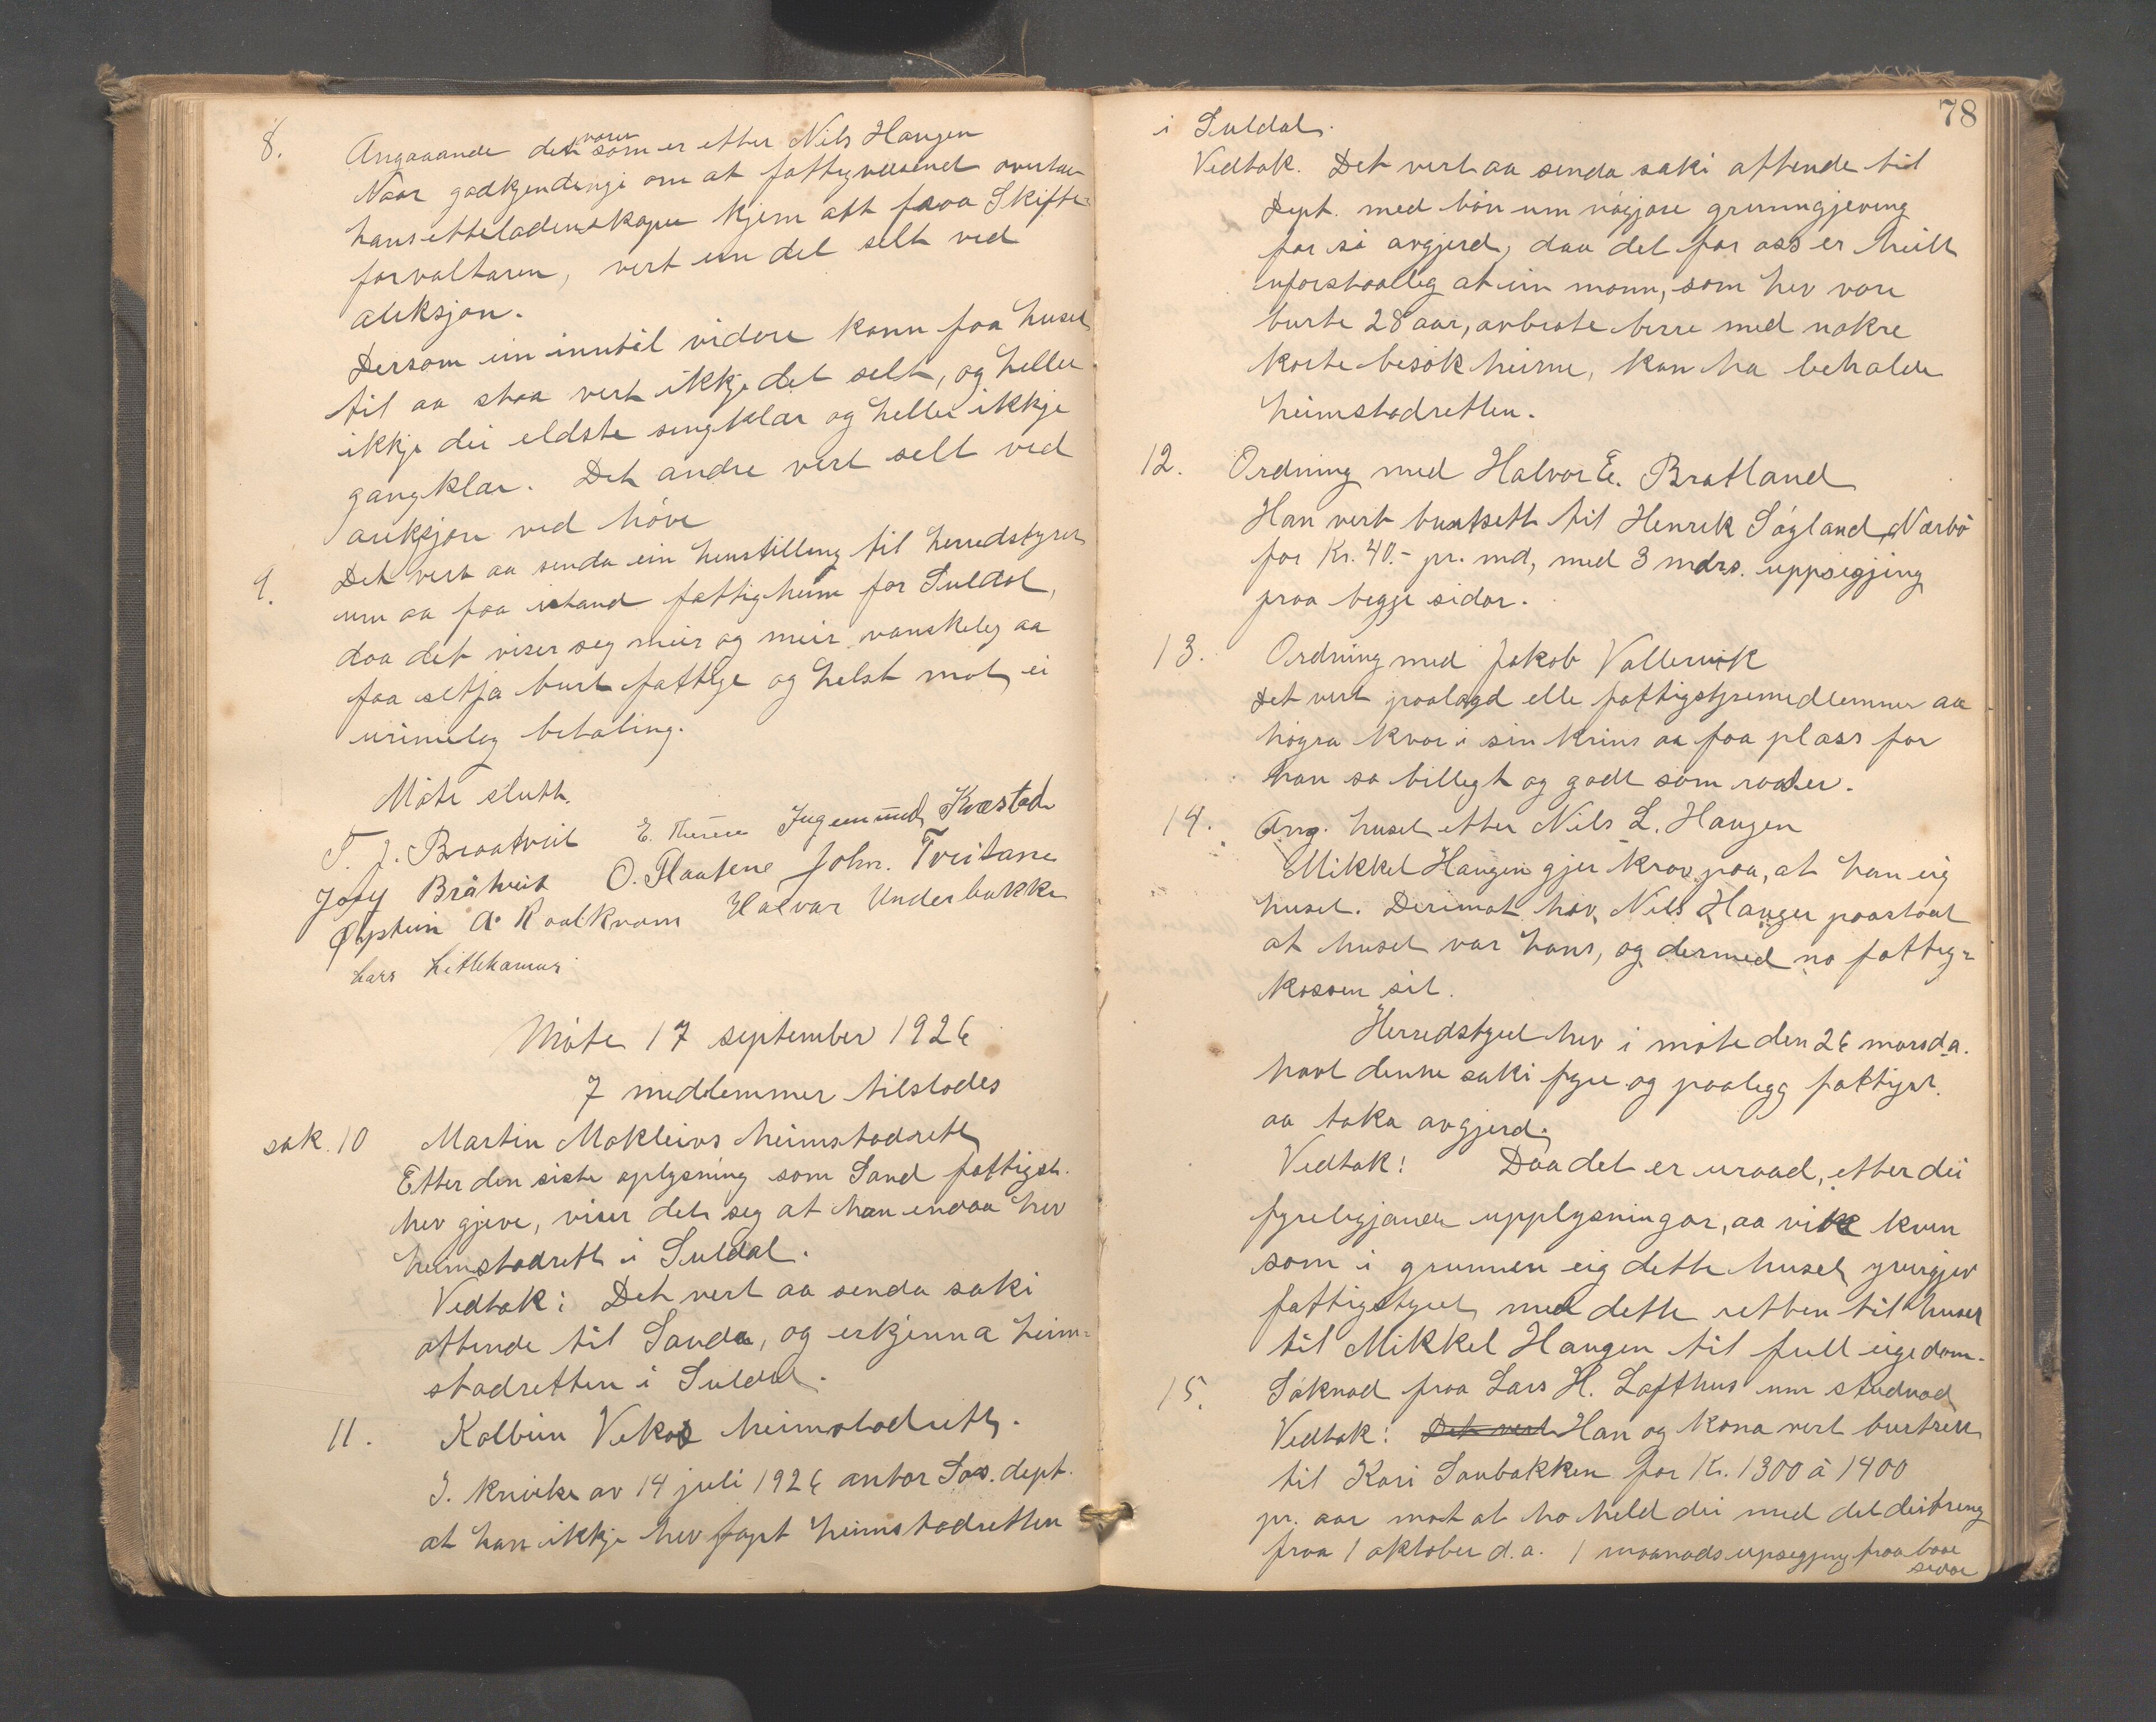 8. Angaaande det som varer er etter Nils Haugen
Naar godkjendingi om at fattigvesenet overtar
hans etteladenskaper kjem att fraa Skifte-
forvaltaren, vert ein del selt ved
auksjon.
Dersom ein inntil vidare kann faa huset
til aa staa vert ikkje det selt, og heller
ikkje dei eldste sengklær og heller ikkje
gangklær. Det andre vert selt ved
auksjon ved høve
9. Det vert aa senda ein henstilling til herredstyret
um aa faa istand fattigheim for Suldal,
daa det viser seg meir og meir vanskeleg aa
faa setja burt fattige og helst mot ei
urimeleg betaling.
Møte slutt.
T. J. Braatveit E. Ingemund Kvæstad
Josef Bråtveit O. Flaatene John. Tveitane
Øystein A. Roalkvam Halvar Underbakke
Lars Littlehamar
Møte 17 september 1926
7 medlemmer tilstades
sak. 10 Martin Mokleivs heimstadrett
Etter den siste oplysning som Sand fattigst.
hev gjeve, viser det seg at han endaa hev
heimstadrett i Suldal.
Vedtak: Det vert aa senda saki
attende til Sanda, og erkjenna heim-
stadretten i Suldal.
11. Kolbein Vekas heimstadrett.
I skrivke av 14 juli 1926 antar Sos. dept.
at han ikkje hev tapt heimstadretten
78
i Suldal.
Vedtak. Det vert aa senda saki attende til
Dept. med bøn um nøgjare grunngjeving
for si avgjerd, daa det for oss er heilt
uforstaaeleg at ein mann, som hev vore
burte 28 aar, avbrote berre med nokre
korte besøk heime, kan ha behalde
heimstadretten.
12. Ordning med Halvor E. Bratland
Han vert burtsett til Henrik Søyland, Nærbø
for Kr. 40.- pr. md, med 3 mdrs. uppsigjing
fraa begge sidor.
13. Ordning med Jakob Vallervik
Det vert paalagd elle fattigstyremedlemmer aa
høyra kvar i sin krins aa faa plass for
han so billegt og godt som raad er.
14. Ang. huset etter Nils L. Haugen
Mikkel Haugen gjer krav paa, at han eig
huset. Derimot hev Nils Haugen paastaat
at huset var hans, og dermed no fattig-
kassen sit.
Herredstyret hev i møte den 26 mars d.a.
havt denne saki fyre og paalegg fattigst.
aa taka avgjerd.
Vedtak! Daa det er uraad, etter dei
fyreligjande upplysningar, aa vita kven
som i grunnen eig dette huset, yvergjev
fattigstyret med dette retten til huset
til Mikkel Haugen til full eigedom.
15. Søknad fraa Lars H. Lofthus um studnad
Vedtak: Det vert Han og kona vert burtsett
til Kari Sanbakken for Kr. 1300 à 1400
pr. aar mot at ho held dei med det dei treng
fraa 1 oktober d.a. 1 maanads upsegjing fraa baae
sidor